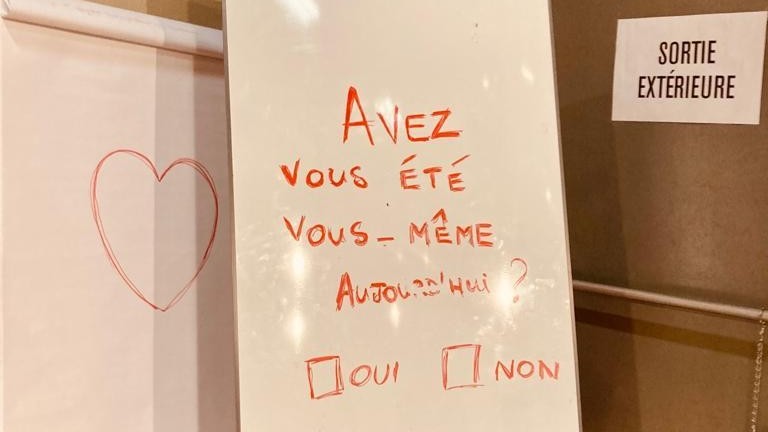 AVEZ
VOUS ÉTÉ
VOUS-MÊME
AUJOURD'HUI ?
OUI NON
SORTIE
EXTÉRIEURE